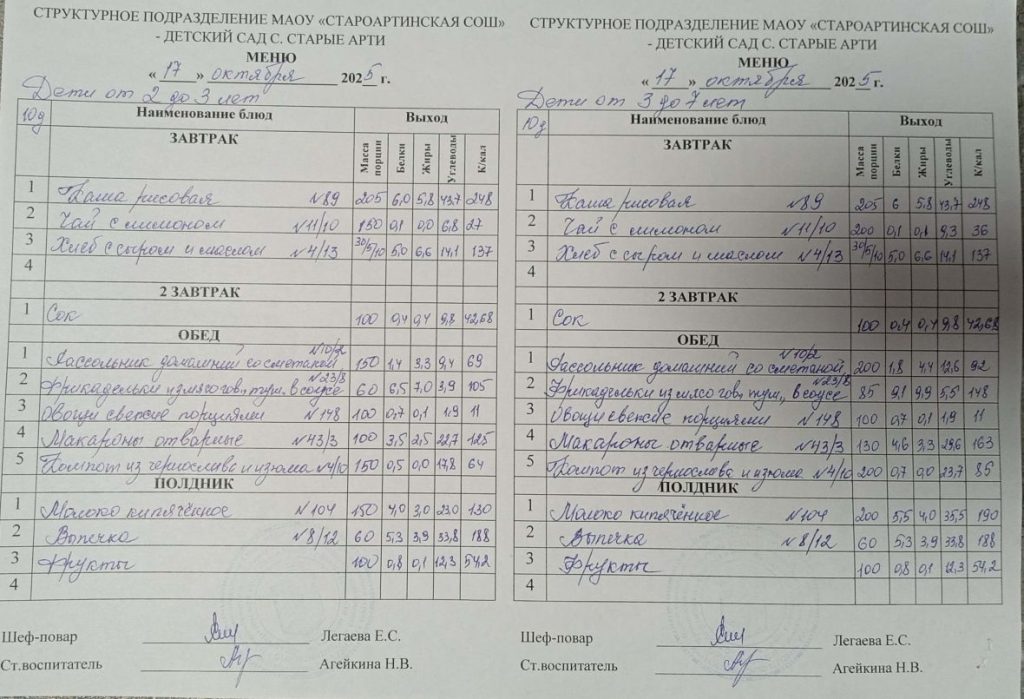 СТРУКТУРНОЕ ПОДРАЗДЕЛЕНИЕ МАОУ «СТАРОАРТИНСКАЯ СОШ»
- ДЕТСКИЙ САД С. СТАРЫЕ АРТИ
МЕНЮ
« 17 » октября 2025 г.
Дети от 2 до 3 лет
10д Наименование блюд Выход
ЗАВТРАК Масса порции Белки Жиры Углеводы К/кал
1 Каша рисовая №89 205 6,0 5,8 43,7 248
2 Чай с лимоном №11/10 150 0,1 0,0 6,8 27
3 Хлеб с сыром и маслом №4/13 30/5/10 5,0 6,6 14,1 137
4
2 ЗАВТРАК
1 Сок 100 0,4 0,4 9,8 42,68
ОБЕД
1 Рассольник домашний со сметаной №10/2 150 1,4 3,3 9,4 69
2 Фрикадельки из мяса гов, туш, в соусе №23/8 60 6,5 7,0 3,9 105
3 Овощи свежие порциями №148 100 0,7 0,1 1,9 11
4 Макароны отварные №43/3 100 3,5 2,5 22,7 125
5 Компот из чернослива и изюма №4/10 150 0,5 0,0 17,8 64
ПОЛДНИК
1 Молоко кипячённое №104 150 4,0 3,0 23,0 130
2 Выпечка №8/12 60 5,3 3,9 33,8 188
3 Фрукты 100 0,8 0,1 12,3 54,2
4
Шеф-повар Легаева Е.С.
Ст.воспитатель Агейкина Н.В.
СТРУКТУРНОЕ ПОДРАЗДЕЛЕНИЕ МАОУ «СТАРОАРТИНСКАЯ СОШ»
- ДЕТСКИЙ САД С. СТАРЫЕ АРТИ
МЕНЮ
« 17 » октября 2025 г.
Дети от 3 до 7 лет
10д Наименование блюд Выход
ЗАВТРАК Масса порции Белки Жиры Углеводы К/кал
1 Каша рисовая №89 205 6 5,8 43,7 248
2 Чай с лимоном №11/10 200 0,1 0,1 9,3 36
3 Хлеб с сыром и маслом №4/13 30/5/10 5,0 6,6 14,1 137
4
2 ЗАВТРАК
1 Сок 100 0,4 0,4 9,8 42,68
ОБЕД
1 Рассольник домашний со сметаной №10/2 200 1,8 4,4 12,6 92
2 Фрикадельки из мяса гов, туш, в соусе №23/8 85 9,1 9,9 5,5 148
3 Овощи свежие порциями №148 100 0,7 0,1 1,9 11
4 Макароны отварные №43/3 130 4,6 3,3 29,6 163
5 Компот из чернослива и изюма №4/10 200 0,7 0,0 23,7 85
ПОЛДНИК
1 Молоко кипячённое №104 200 5,5 4,0 35,5 190
2 Выпечка №8/12 60 5,3 3,9 33,8 188
3 Фрукты 100 0,8 0,1 12,3 54,2
4
Шеф-повар Легаева Е.С.
Ст.воспитатель Агейкина Н.В.